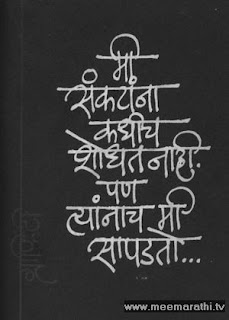 मी
संकटांना
कधीच
शोधत नाही.
पण
त्यांनाच मी
सापडतो...
www.meemarathi.tv